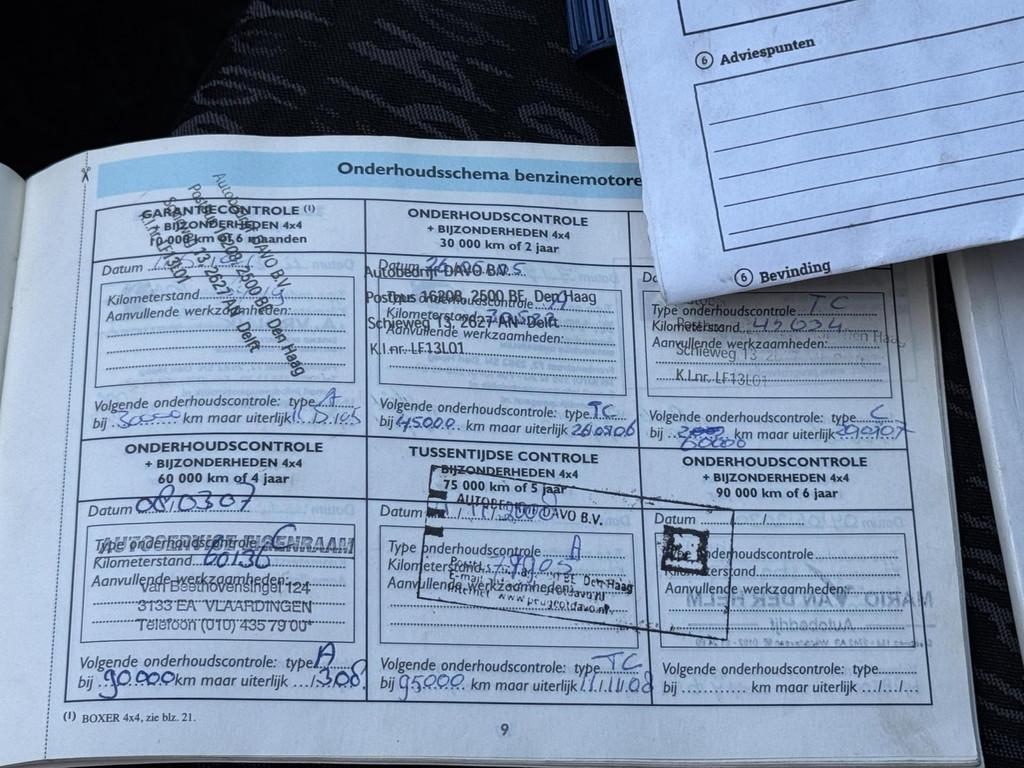 6 Adviespunten
6 Bevinding
Onderhoudsschema benzinemotore
GARANTIECONTROLE (1)
+ BIJZONDERHEDEN 4x4
10 000 km of 6 maanden
Datum
Kilometerstand
Aanvullende werkzaamheden:
Autobedrijf DAVO B.V.
Postbus 16208, 2500 BE Den Haag
Schieweg 13, 2627 AN Delft
K.I.nr. LF13L01
Volgende onderhoudscontrole: type A
bij 30000 km maar uiterlijk
ONDERHOUDSCONTROLE
+ BIJZONDERHEDEN 4x4
30 000 km of 2 jaar
Datum
Autobedrijf DAVO B.V.
Type onderhoudscontrole A
Postbus 16208, 2500 BE Den Haag
Kilometerstand
Schieweg 13, 2627 AN Delft
Aanvullende werkzaamheden:
K.I.nr. LF13L01
Volgende onderhoudscontrole: type TC
bij 45000 km maar uiterlijk
Type onderhoudscontrole TC
Kilometerstand 42634
Aanvullende werkzaamheden:
Schieweg 13, 2
K.I.nr. LF13L01
Volgende onderhoudscontrole: type C
bij 60000 km maar uiterlijk
ONDERHOUDSCONTROLE
+ BIJZONDERHEDEN 4x4
60 000 km of 4 jaar
Datum 080307
Type onderhoudscontrole C
Kilometerstand 60136
Aanvullende werkzaamheden:
Van Beethovensingel 124
3133 EA VLAARDINGEN
Telefoon (010) 435 79 00*
Volgende onderhoudscontrole: type A
bij 90.000 km maar uiterlijk .../308
TUSSENTIJDSE CONTROLE
BIJZONDERHEDEN 4x4
75 000 km of 5 jaar
AUTOBEDRIJF DAVO B.V.
Datum
Type onderhoudscontrole A
Kilometerstand
Aanvullende werkzaamheden:
www.peugeotdavo.nl
Volgende onderhoudscontrole: type TC
bij 95000 km maar uiterlijk
ONDERHOUDSCONTROLE
+ BIJZONDERHEDEN 4x4
90 000 km of 6 jaar
Datum .../.../...
Type onderhoudscontrole
Kilometerstand
Aanvullende werkzaamheden:
Volgende onderhoudscontrole: type
bij ... km maar uiterlijk .../.../...
(1) BOXER 4x4, zie blz. 21.
9